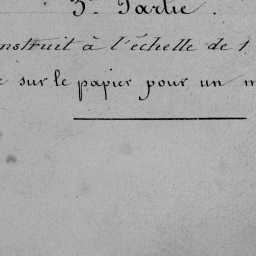 3e Partie.
nstruit à l'échelle de 1
sur le papier pour un